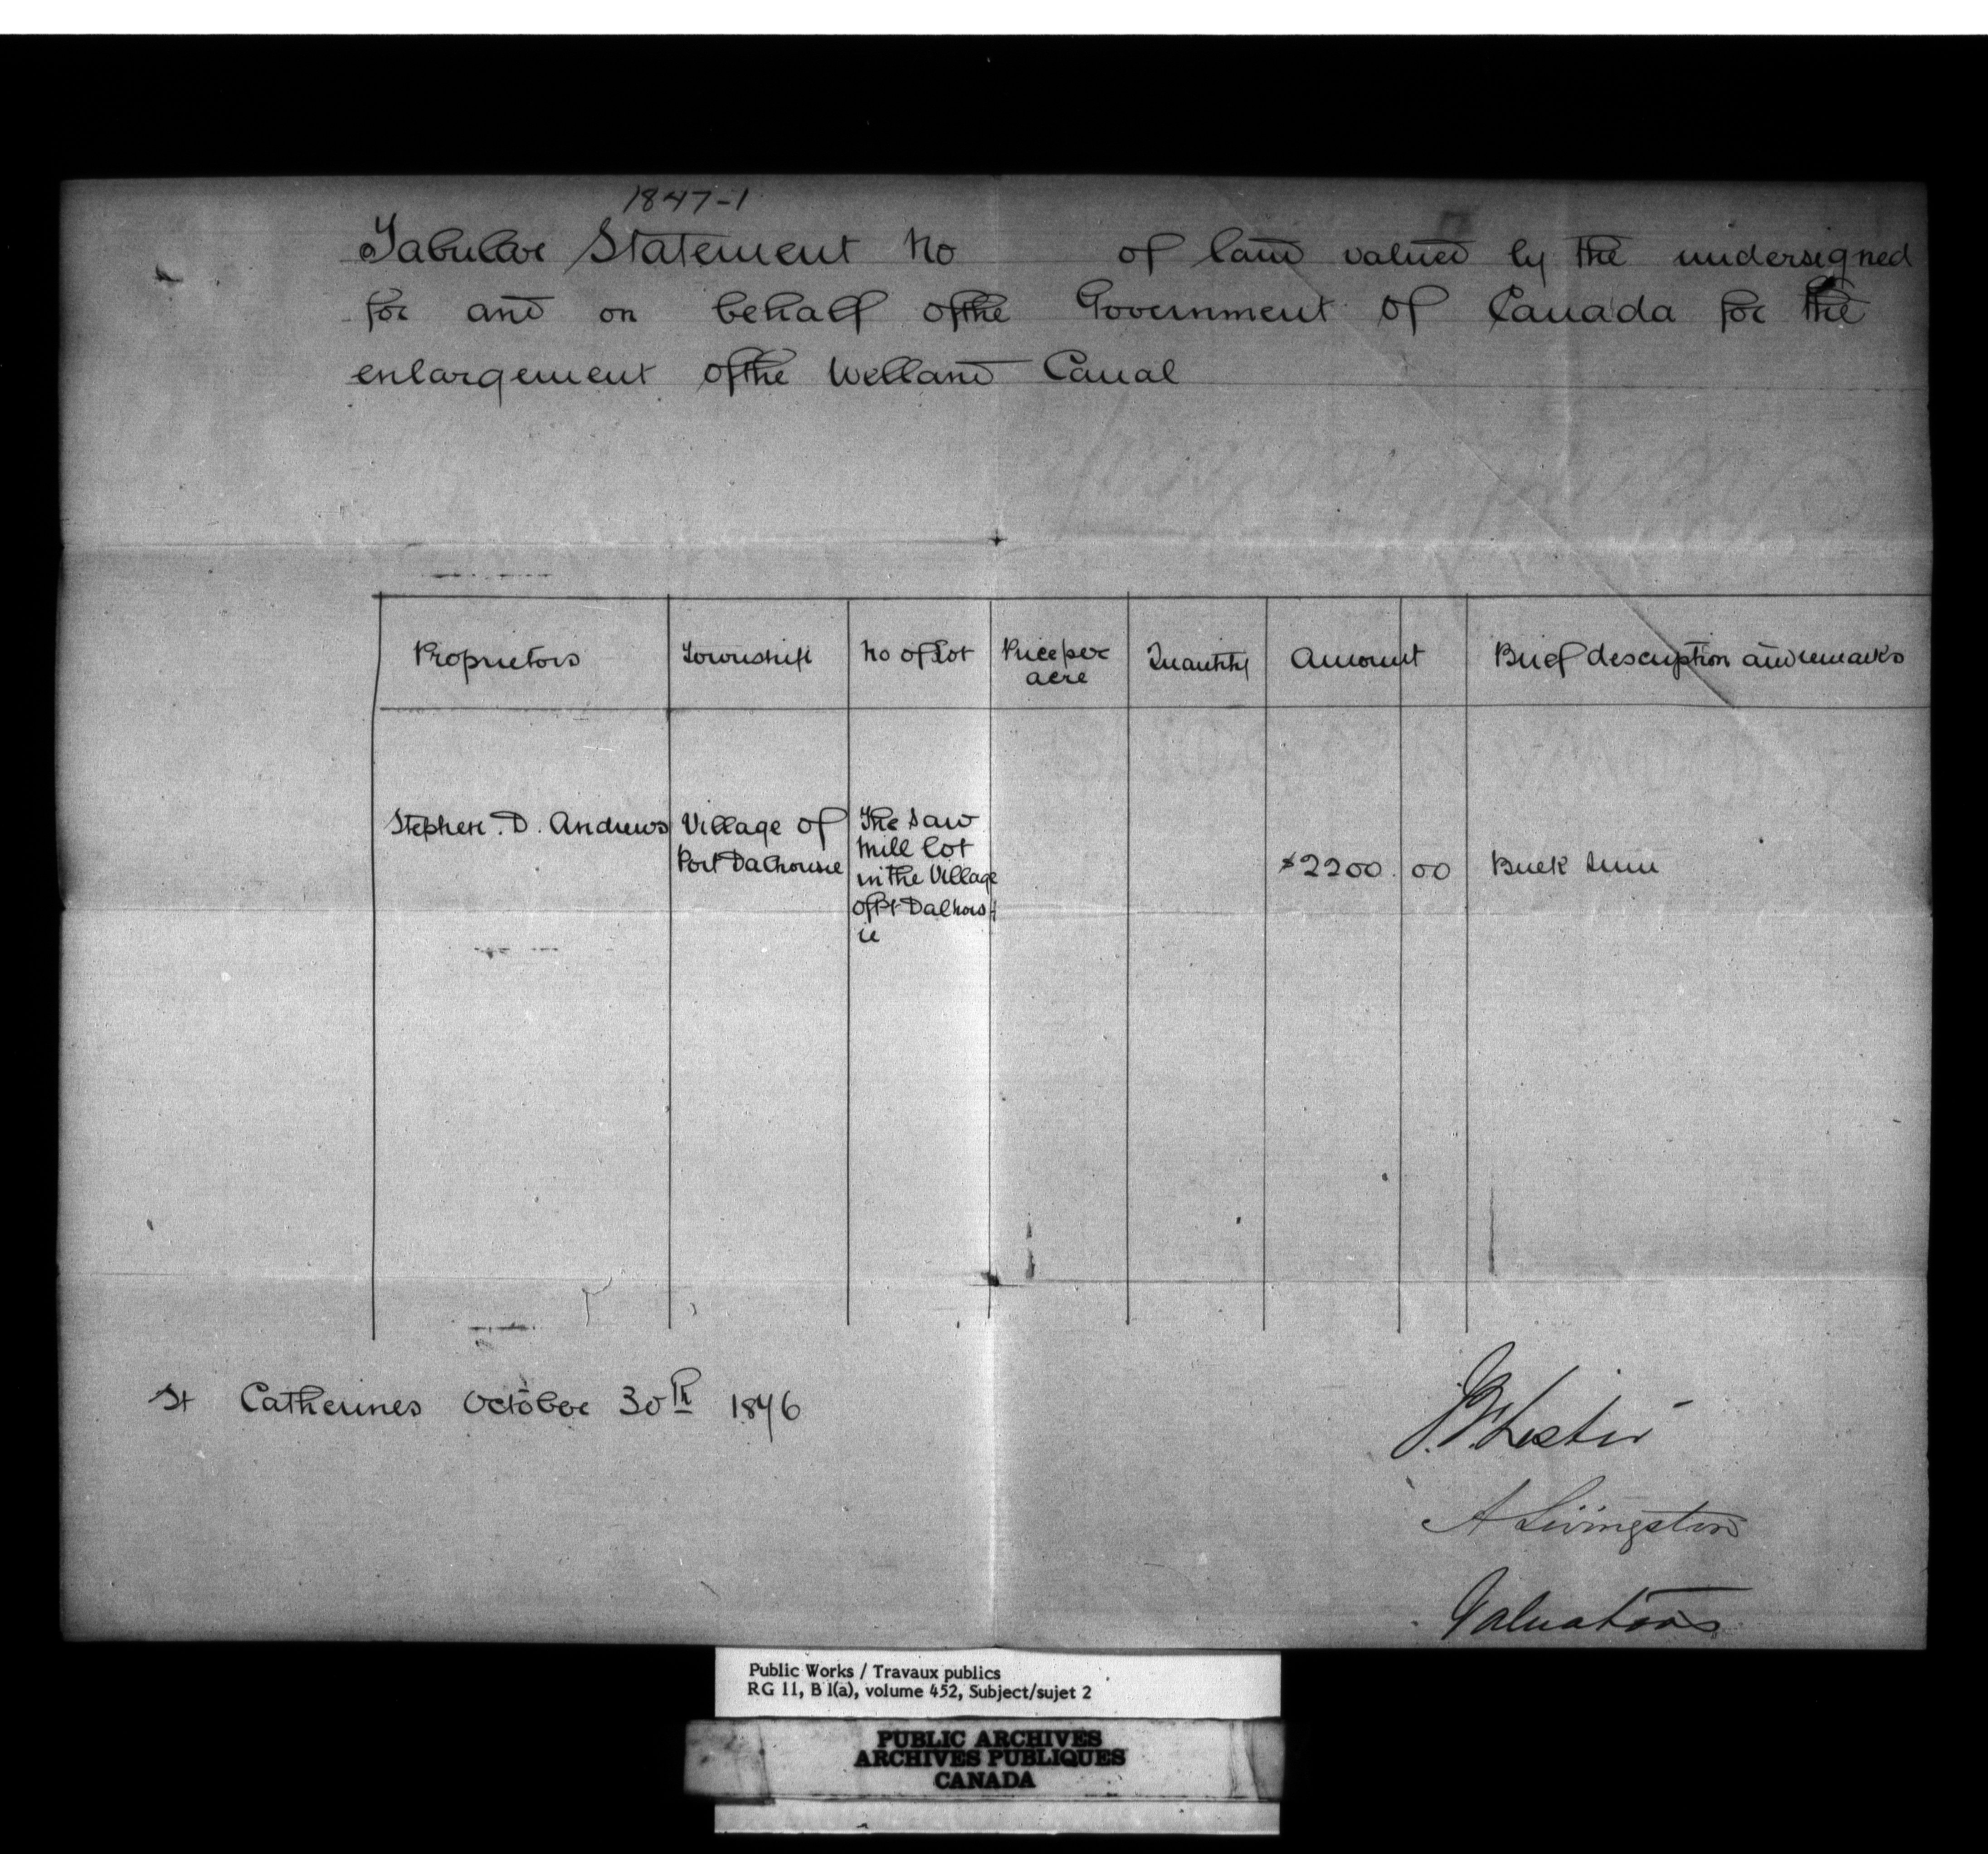 1847-1
Tabular Statement No of land valued by the undersigned
for and on behalf of the Government of Canada for the
enlargement of the Welland Canal
Proprietors Township No of Lot Price per acre Quantity Amount Brief description and remarks
Stephen. D. Andrews Village of Port Dalhousie The Saw
Mill lot
in the Village
of Pt Dalhous
ie
$2200.00
St Catherines October 30th 1876
Lester
A Livingston
Valuators
Public Works / Travaux publics
RG 11, B 1(a), volume 452, Subject/sujet 2
PUBLIC ARCHIVES
ARCHIVES PUBLIQUES
CANADA